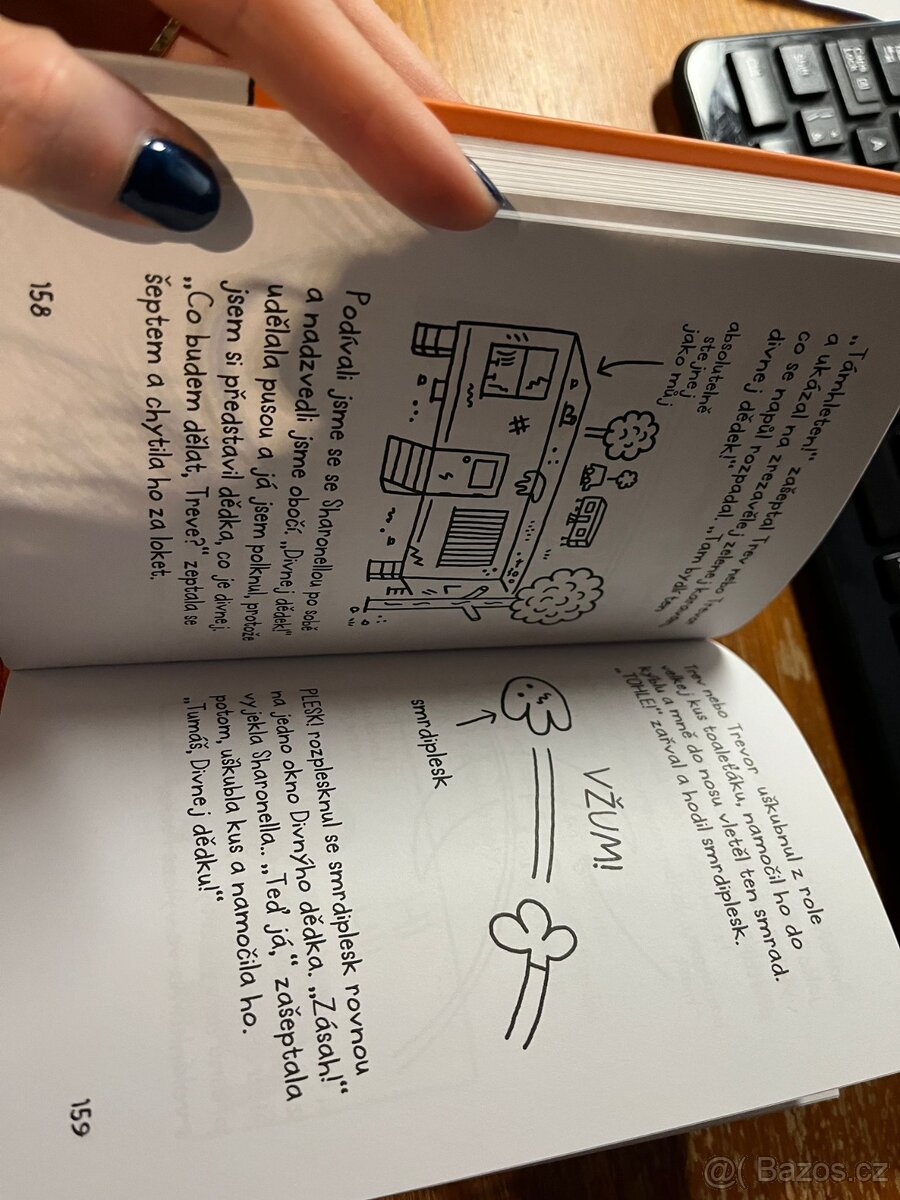 „Támhleten!“ zašeptal Trev nebo Trevor
a ukázal na zrezavělej zelenej karavan,
co se napůl rozpadal. „Tam bydlí ten
divnej dědek!“
absolutelně
stejnej
jako můj
Podívali jsme se se Sharonellou po sobě
a nadzvedli jsme obočí. „Divnej dědek!“
udělala pusou a já jsem polknul, protože
jsem si představil dědka, co je divnej.
„Co budem dělat, Treve?“ zeptala se
šeptem a chytila ho za loket.
158
Trev nebo Trevor uškubnul z role
velkej kus toaleťáku, namočil ho do
kýblu a mně do nosu vletěl ten smrad.
„TOHLE!“ zařval a hodil smrdiplesk.
VŽUM!
smrdiplesk
PLESK! rozplesknul se smrdiplesk rovnou
na jedno okno Divnýho dědka. „Zásah!“
vyjekla Sharonella.. „Teď já,“ zašeptala
potom, uškubla kus a namočila ho.
„Tumáš, Divnej dědku!“
159
@( Bazos.cz